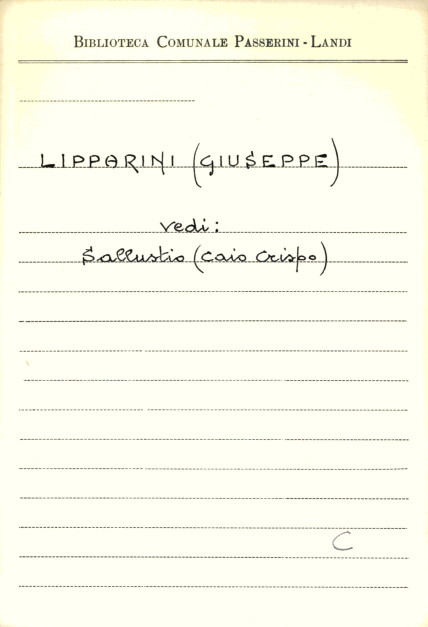 Biblioteca Comunale Passerini - Landi
LIPPARINI (GIUSEPPE)
vedi:
Sallustio (Caio Crispo)
C